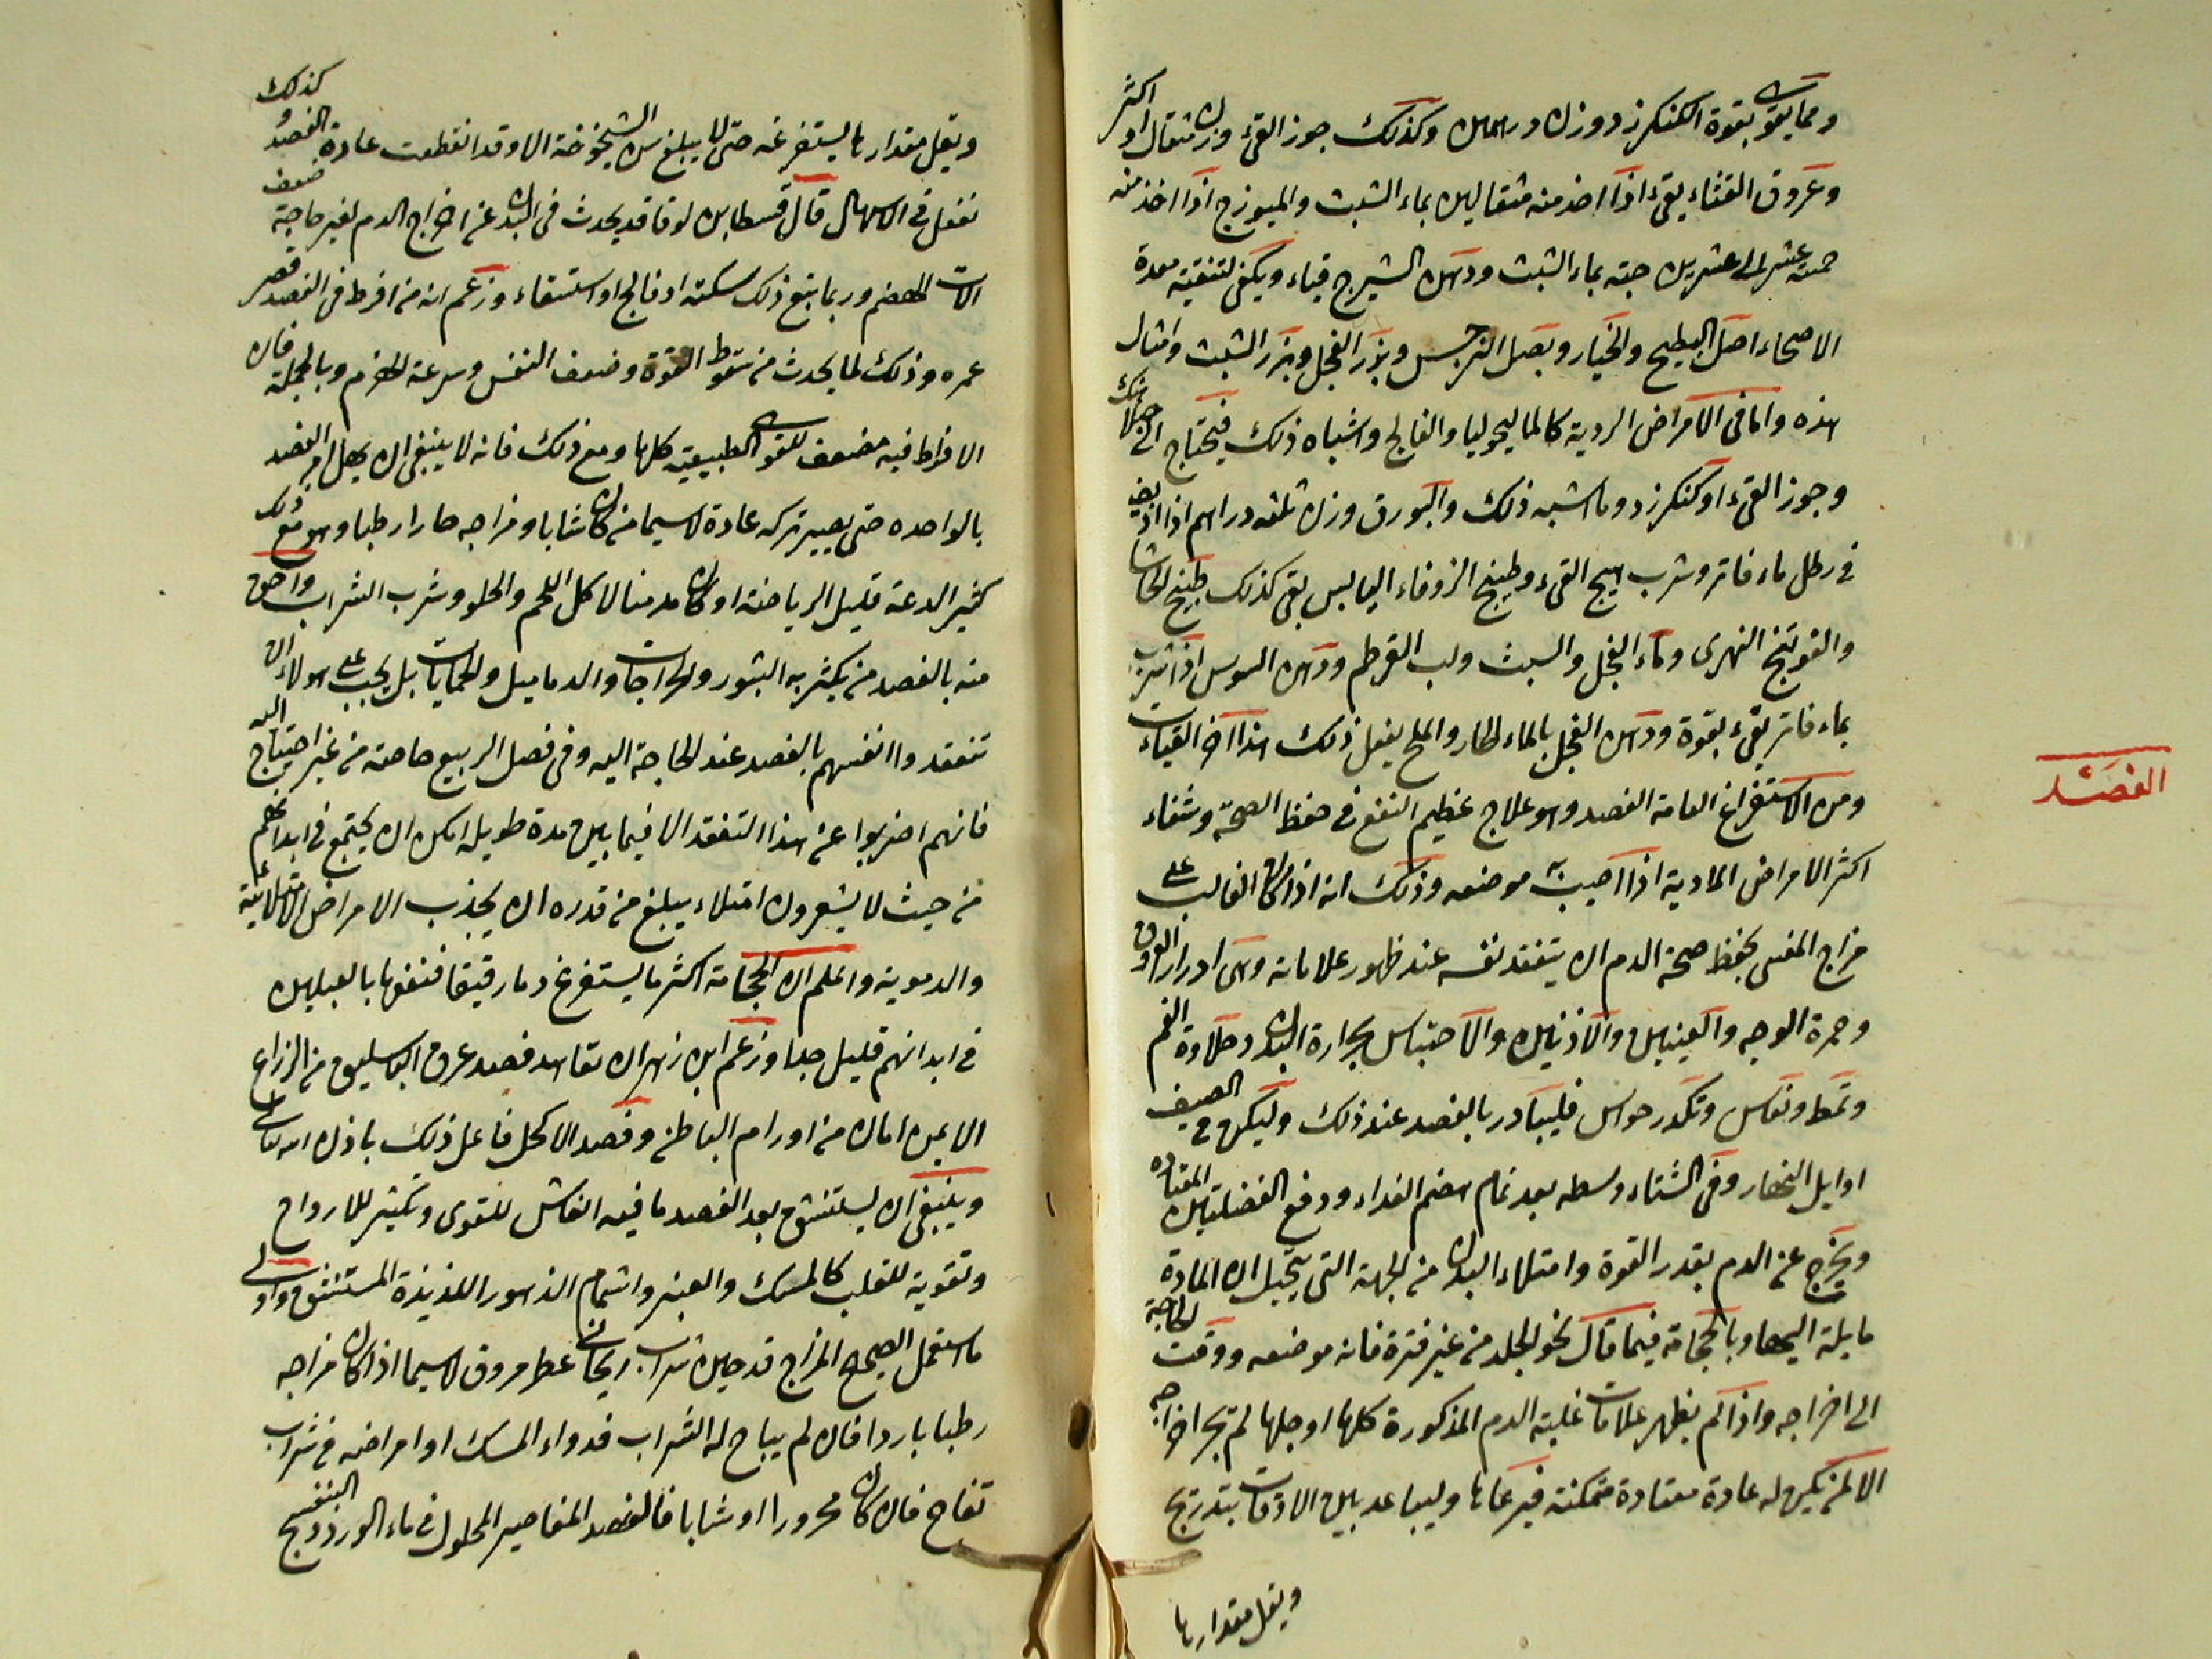 ومما يقوى بقوة الكنكرزد وزن درهمين وكذلك جوز القئ وزن مثقال او اكثر
وعروق القثاء يقئ اذا اخذ منه مثقالين بماء الشبت والميوزج اذا اخذ منه
خمسة عشر الى عشرين حبة بماء الشبث ودهن الشيرج قياء ويكفى لتنقية معدة
الاصحاء اصل البطيخ والخيار وبصل النرجس وبزر الفجل وبزر الشبث وامثال
هذه واما فى الامراض الردية كالماليخوليا والفالج واشباه ذلك فيحتاج الى
وجوز القئ او كنكرزد وما اشبه ذلك والبورق وزن ثلثه دراهم اذا اذيف
فى رطل ماء فاتر وشرب هيج القئ وطبيخ الزوفاء اليابس يقئ كذلك طبيخ الحاشا
والفوتنج النهرى وماء الفجل والسبث ولب القرطم ودهن السوسن اذا شرب
بماء فاتر يقئ بقوة ودهن الفجل بالماء الحار والملح يفعل ذلك هذا اخر القيات
ومن الاستفراغ العامة الفصد وهو علاج عظيم النفع فى حفظ الصحة وشفاء
الفصَد
اكثر الامراض المادية اذا اصيب به موضعه وذلك انه اذا كان الغالب على
مزاج المفنى بحفظ صحة الدم ان يتفقد نفسه عند ظهور علاماته وهى ادرار العروق
وحمرة الوجه والعينين والاذنين والاحتباس بحرارة البدن وحلاوة الفم
وتمط ونعاس وتكدر حواس فليبادر بالفصد عند ذلك وليكن فى الصيف
اوايل النهار وفى الشتاء وسطه بعد تمام هضم الغداء ودفع الفضلتين المعتاده
ويخرج عن الدم بقدر القوة وامتلاء البدن من الجهة التى يتخيل ان المادة
مايلة اليها وبالحجامة فيما مال نحو الجلد من غير فترة فانه موضعه ووقت الحاجة
الى اخراجه واذا لم يظهر علامات غلبة الدم المذكورة كلها او جلها لم تجز اخراجه
الا لمن يكن له عادة معتادة متمكنة فيرعاها وليباعد بين الاوقات بتدريج
ويقل مقدارها
ويقل مقدار ما يستفرغه حتى لا يبلغ سن الشيخوخة الا وقد انقطعت عادة الفصد وكذلك
نفعل فى الاسهال قال قسطا بن لوقا قد يحدث فى البدن عن اخراج الدم لغير حاجة ضعف
الات الهضم وربما تبع ذلك سكتة او فالج او استسقاء وزعم انه من افرط فى الفصد قصر
عمره وذلك لما يحدث من سقوط القوة وضعف النفس وسرعة الهرم وبالجملة فان
الافراط فيه مضعف للقوى الطبيعية كلها ومع ذلك فانه لا ينبغى ان يهمل امر الفصد
بالواحده حتى يصير تركه عادة لاسيما من كان شابا ومزاجه حارا رطبا وهو مع ذلك
كثير الدعة قليل الرياضة او كان مدمنا لاكل اللحم والحلو وشرب الشراب واحق
منه بالفصد من يكثر به البثور والخراجات والدماميل والحميات بل يجب على هولاء ان
تتفقدوا انفسهم بالفصد عند الحاجة اليه وفى فصل الربيع خاصة من غير احتياج اليه
فانهم اضربوا عن هذا التفقد الا فيما بين مدة طويله امكن ان يجتمع فى ابدانهم
من حيث لا يشعرون امتلاء يبلغ من قدره ان يجذب الامراض الامتلائية
والدموية واعلم ان الحجامة اكثر ما يستفرغ دما رقيقا فنفعها بالعبلين
فى ابدانهم قليل جدا وزعم ابن زهر ان تعاهد فصد عرق الباسليق من الزراع
الايمن امان من اورام الباطن وفصد الاكحل فاعل ذلك باذن الله تعالى
وينبغى ان يستنشق بعد الفصد ما فيه انعاش للقوى وتكثير للارواح
وتقوية للقلب كالمسك والعنبر واشمام الزهور اللذيذة المستنشق واولى
ما استعمل الصحيح المزاج قدحين شراب ريحانى عطر مروق لاسيما اذا كان مزاجه
رطبا باردا فان لم يباح له الشراب فدواء المسك او امراضه فى شراب
تفاح فان كان محرورا او شابا فالفصد المفاصير المحلول فى ماء الورد ودهن البنفسج